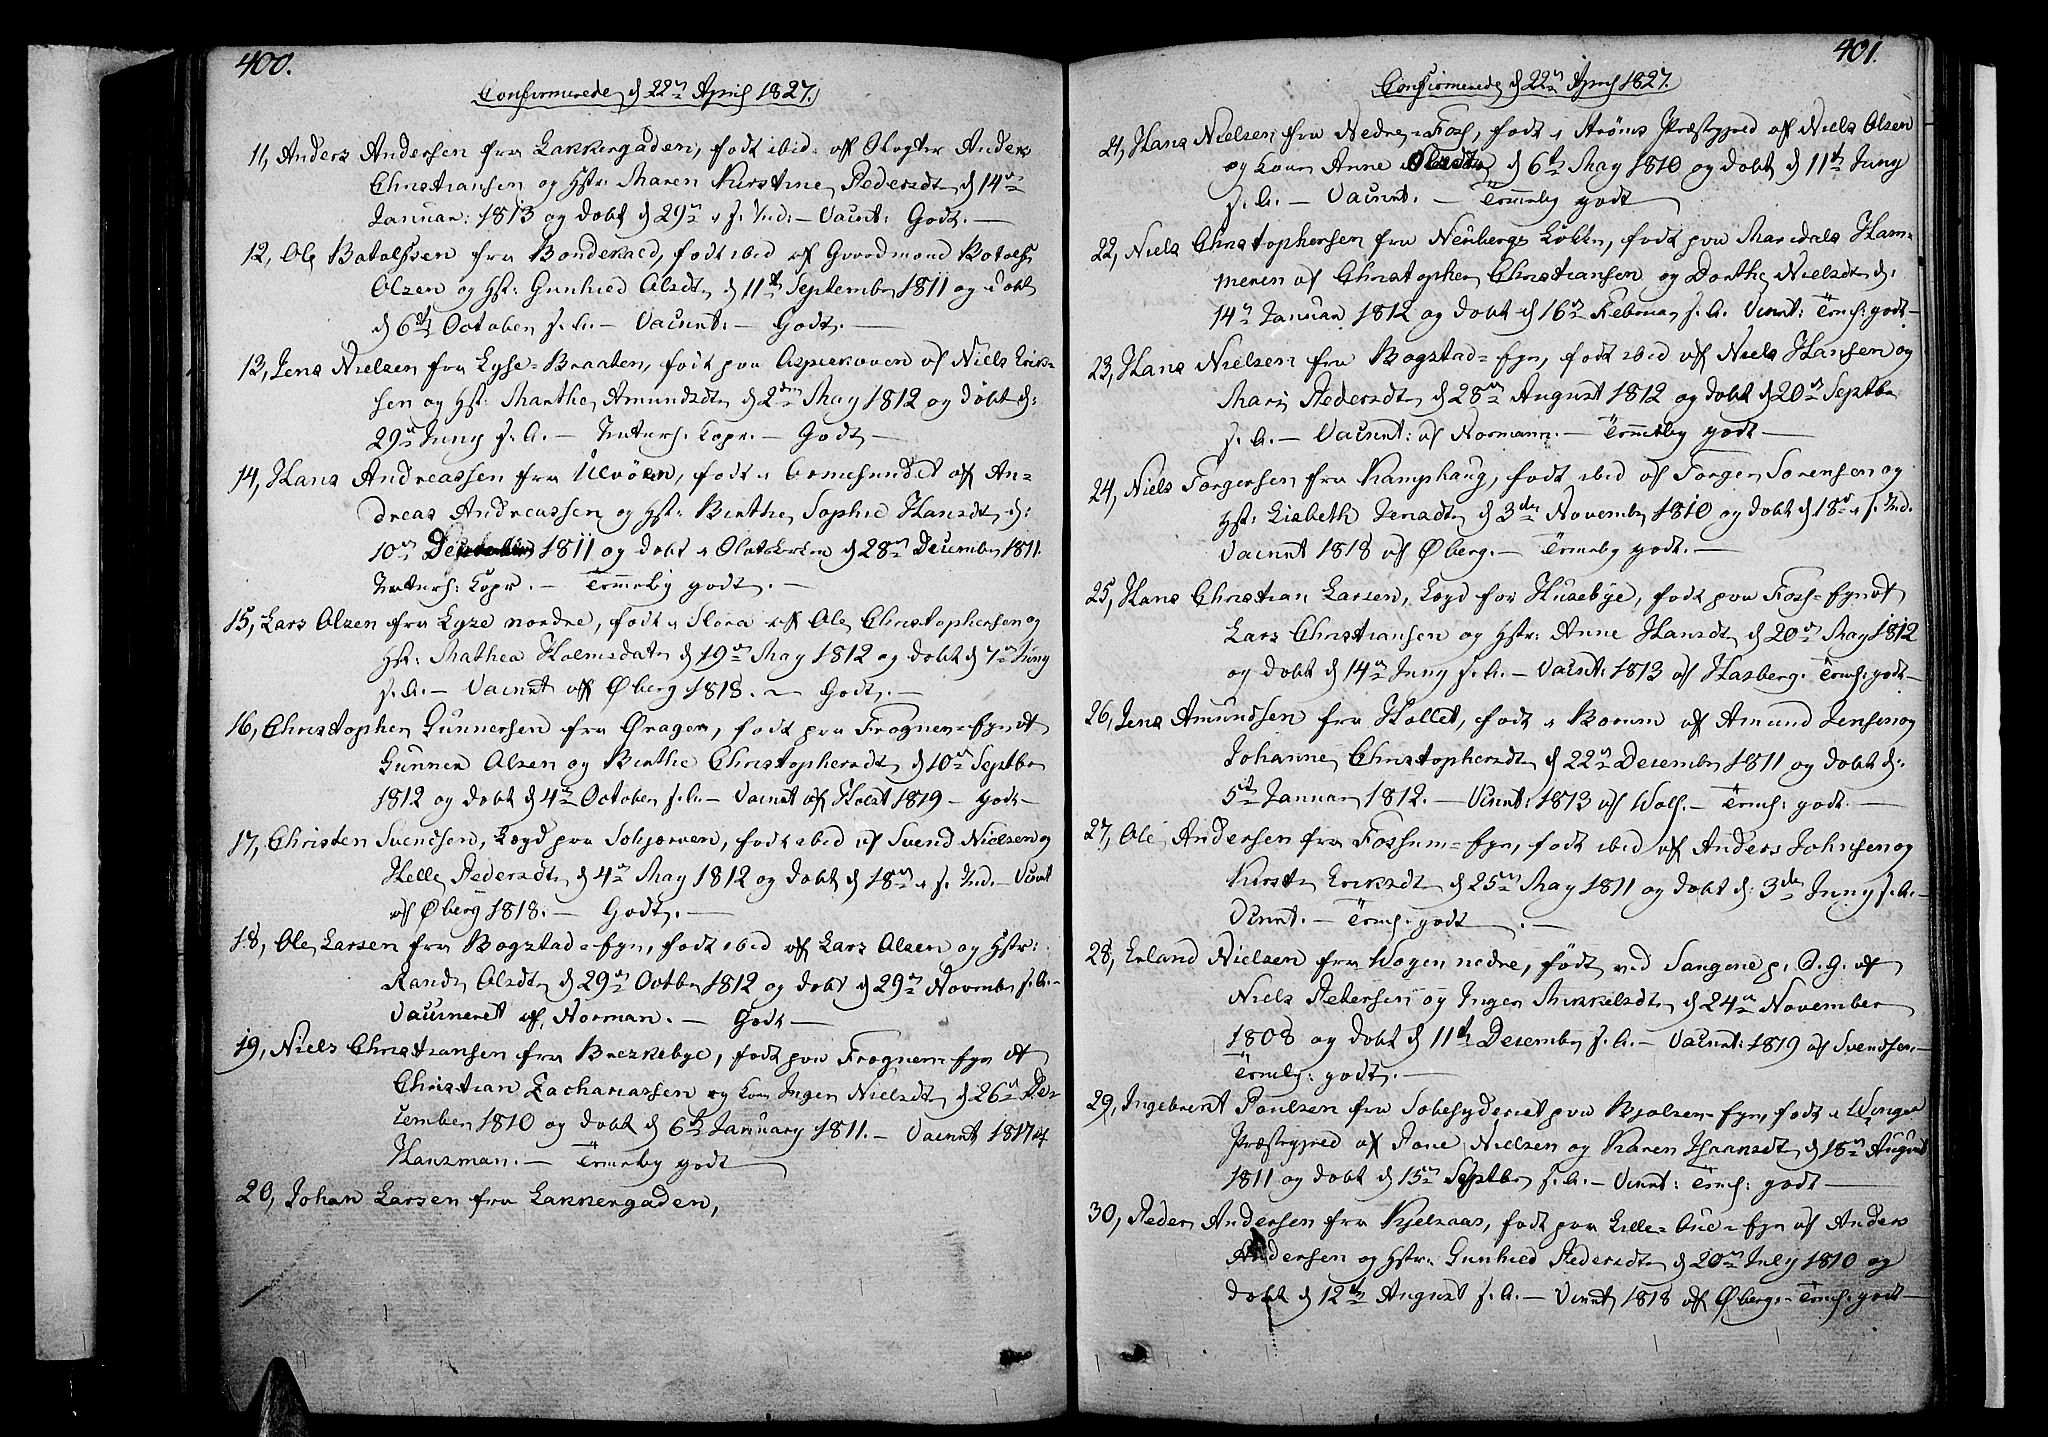 400.
Confirmerede d 22de April 1827.
11, Anders Andersen fra Lakkergaden, født ibid: af Slagter Anders
Christiansen og Hstr: Maren Kirstine Pedersdt d 14de
Januar: 1813 og døbt d 29de s. f. Md: – Vacint: Godt. –
12, Ole Botolfsen fra Bonderud, født ibid af Gaardmand Botolf
Olsen og Hst: Gunhild Olsdt d 11te September 1811 og døbt
d 6te October s. A. – Vacint: – Godt. –
13, Jens Nielsen fra Lyse-Braaten, født paa Aspieskoven af Niels Erik-
sen og Hst: Marthe Amundsdt d 2den May 1812 og døbt d:
29de Juny s. A. – Naturl. Kopr. – Godt –
14, Hans Andreassen fra Ulvøen, født i Ormesundet af An-
dreas Andreassen og Hst: Birthe Sophie Hansdt d:
10de 1811 og døbt i Oslo Kirke d 28de December 1811.
Naturl: Kopr. – Temmelig godt. –
15, Lars Olsen fra Lyse nordre, født i Slora af Ole Christophersen og
Hst: Mathea Holmsdatr d 19de May 1812 og døbt d 7de Juny
s. A. – Vacint af Øberg 1818. – Godt. –
16, Christopher Gunnersen fra Grager, født paa Frogner-Eyn af
Gunner Olsen og Birthe Christophersdt d 10de Septbr
1812 og døbt d 4de October s. A. – Vacint af Holst 1819 – godt –
17, Christen Svendsen, Lægd paa Sohjørnen, født ibid af Svend Nielsen og
Helle Pedersdt d 4de May 1812 og døbt d 18de s. Md. – Vacint
af Øberg 1818. – Godt. –
18, Ole Larsen fra Bogstad-Eyn, født ibid af Lars Olsen og Hstr:
Randi Olsdt d 29de Octbr 1812 og døbt d 29de Novembr s. A. –
Vacineret af Norman. – Godt –
19, Niels Christiansen fra Brekkebye, født paa Frogner-Eyn af
Christian Zachariassen og Kone Inger Nielsdt d 26de De-
cember 1810 og døbt d 6te January 1811. – Vacint 1817 af
Hansman. – Temmelig godt –
20, Johan Larsen fra Lakkergaden,
401.
Confirmerede d 22de April 1827.
21, Hans Nielsen fra Nedre-Foss, født i Strøms Præstegjeld af Niels Olsen
og Kone Anne Olsdtr d 6te May 1810 og døbt d 11te Juny
s. A. – Vacint. – Temmelig godt
22, Niels Christophersen fra Neubergs Løkke, født paa Maridals Ham-
meren af Christopher Christiansen og Dorthe Nielsdt d:
14de Januar 1812 og døbt d 16de Februar s. A. Vacint: Teml: godt –
23, Hans Nielsen fra Bogstad-Eyn, født ibid af Niels Hansen og
Mari Pedersdt d 28de August 1812 og døbt d 20de Septbr
s. A. – Vacint: af Normann. – Temmelig godt –
24, Niels Torgersen fra Kamphaug, født ibid af Torger Sørensen og
Hst: Lisbeth Jensdt d 3die November 1810 og døbt d 18de s. Md.
Vacint 1818 af Øberg. – Temmelig godt. –
25, Hans Christian Larsen, Lægd fra Husebye, født paa Foss-Eyn af
Lars Christiansen og Hstr: Anne Hansdt d 20de May 1812
og døbt d 14de Juny s. A. – Vacint: 1813 af Hasberg. Teml: godt –
26, Jens Amundsen fra Hollet, født i Borum af Amund Jensen og
Johanne Christophersdt d 22de December 1811 og døbt d:
5te Januar 1812. – Vacint: 1813 af Wolf. – Teml: godt. –
27, Ole Andersen fra Fossum-Eyn, født ibid af Anders Johnsen og
Kirsti Eriksdt d 25de May 1811 og døbt d: 3die Juny s. A. –
Vacint. – Teml: godt. –
28, Erland Nielsen fra Wøyen nedre, født ved Sangene p. S. G. af
Niels Petersen og Inger Mikkelsdt d 24de November
1808 og døbt d 11te December s. A. – Vacint: 1819 af Svendsen. –
Teml: godt. –
29, Ingebrent Poulsen fra Sæbesyderiet paa Bjølsen-Eyn, født i Winger
Præstegjeld af Povel Nielsen og Karen Hansdt d 18de August
1811 og døbt d 15de Septbr s. A. – Vacint: Teml: godt –
30, Peder Andersen fra Kjelsaas, født paa Lille-Aue-Eyn af Anders
Andersen og Hstr: Gunhild Pedersdt d 20de July 1810 og
døbt d 12te August s. A. – Vacint 1818 af Øberg. – Teml: godt –